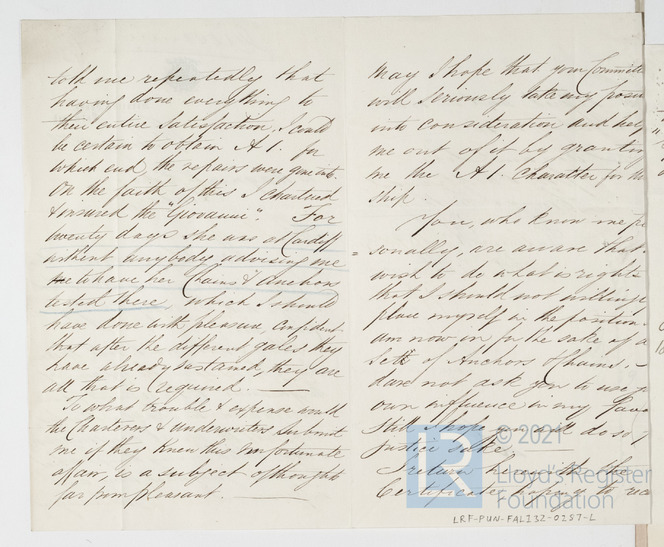 told me repeatedly that
having done everything to
their entire satisfaction, I could
be certain to obtain A 1. for
which end the repairs were gone into.
On the faith of this I chartered
& insured the "Giovanni". For
twenty days she was at Cardiff
without anybody advising me
to have her Chains & Anchors
tested there which I should
have done with pleasure, confident
that after the different gales they
have already sustained, they are
all that is required.
To what trouble & expense would
the Charterers & underwriters submit
me if they knew this unfortunate
affair, is a subject of thought
far from pleasant.
may I hope that your Committee
will seriously take my
into consideration and
me out of it by
me the A 1. Character for
ship.
You, who know me
sonally, are aware that
wish to do what is right &
that I should not
place myself in the position
am now in for the sake of a
sett of Anchors & Chains
dare not ask you to use
own influence in my
Still I hope you will do so
justice sake
I return herewith the
Certificate hoping to
© 2021
Lloyd's Register
Foundation
LRF-PUN-FAL132-0257-L